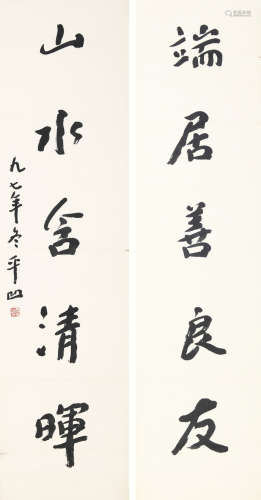 端居善良友
山水含清暉
九七年冬平凹